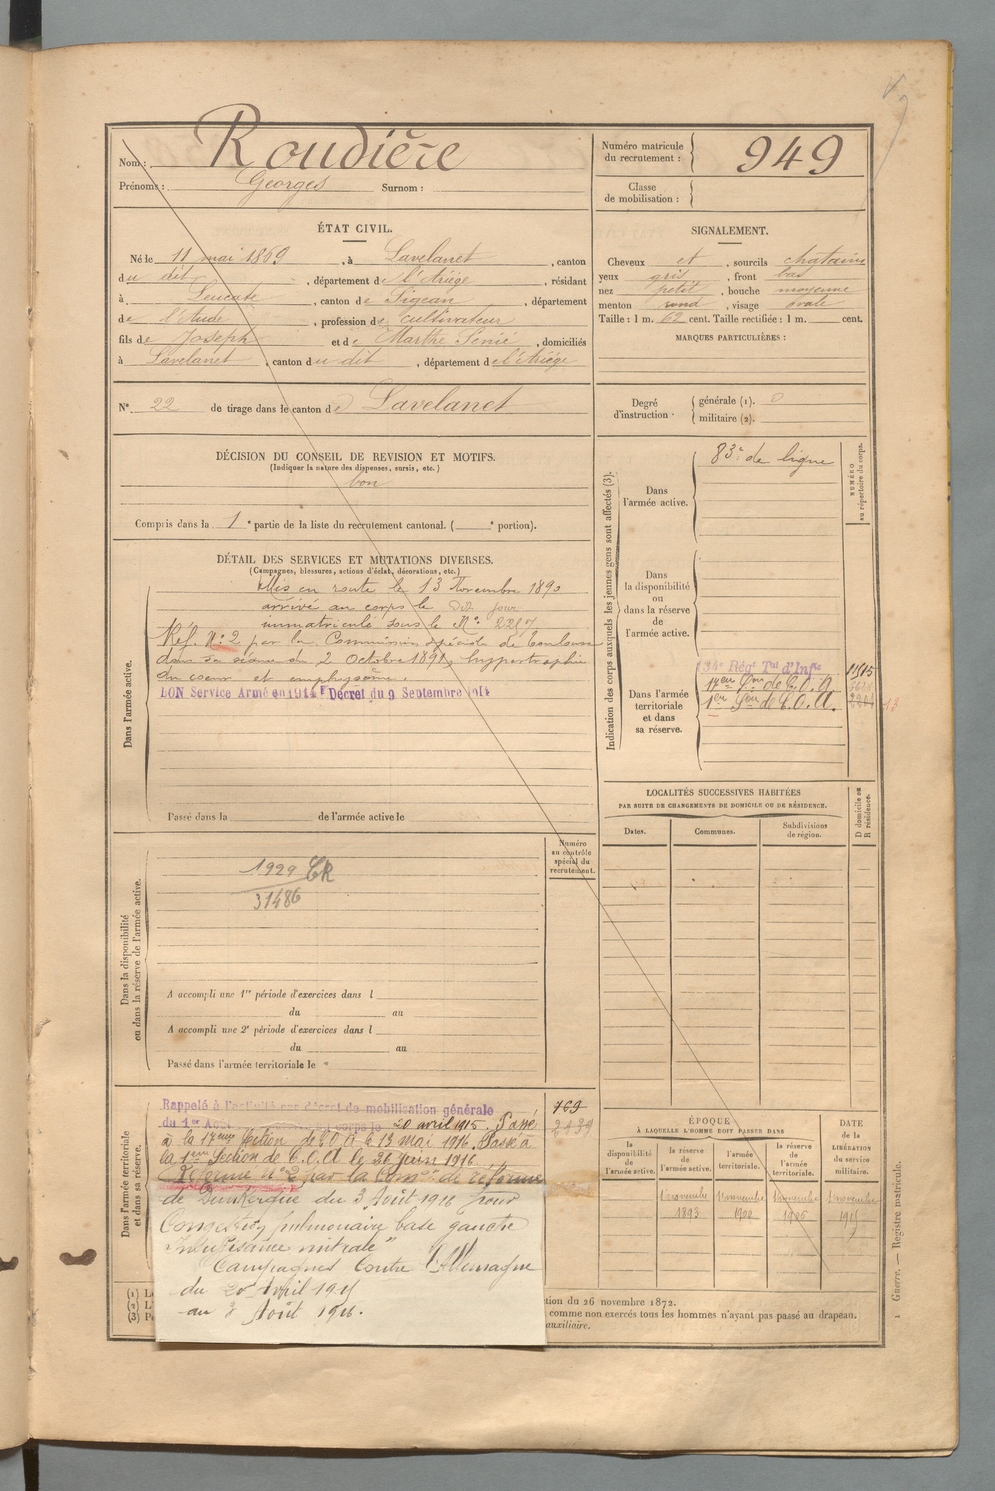 Nom : Roudière
Prénoms : Georges Surnom :
Numéro matricule du recrutement : 949
Classe de mobilisation :
ÉTAT CIVIL.
Né le 11 mai 1869, à Lavelanet, canton
du dit, département de l'Ariège, résidant
à Leucate, canton de Sigean, département
de l'Aude, profession de cultivateur
fils de Joseph et de Marthe Senié, domiciliés
à Lavelanet, canton du dit, département de l'Ariège
N° 22 de tirage dans le canton de Lavelanet
SIGNALEMENT.
Cheveux et, sourcils chatains
yeux gris, front bas
nez petit, bouche moyenne
menton rond, visage ovale
Taille : 1 m. 62 cent. Taille rectifiée : 1 m. cent.
MARQUES PARTICULIÈRES :
Degré d'instruction. générale (1). 0
militaire (2).
DÉCISION DU CONSEIL DE REVISION ET MOTIFS.
(Indiquer la nature des dispenses, sursis, etc.)
bon
Compris dans la 1e partie de la liste du recrutement cantonal. ( e portion).
DÉTAIL DES SERVICES ET MUTATIONS DIVERSES.
(Campagnes, blessures, actions d'éclat, décorations, etc.)
Dans l'armée active.
Mis en route le 13 Novembre 1890
arrivé au corps le dit jour
immatriculé sous le N°
Réf. N: 2 par la Commission spéciale de Toulouse
dans sa séance du 2 Octobre 1891, hypertrophie
du coeur et emphysème.
BON Service Armé en 1914 Décret du 9 Septembre 1914
Passé dans la de l'armée active le
Indication des corps auxquels les jeunes gens sont affectés (3).
NUMÉRO au répertoire du corps.
Dans l'armée active.
83e de ligne
Dans la disponibilité ou dans la réserve de l'armée active.
Dans l'armée territoriale et dans sa réserve.
34e Régt Tal d'Infie
17eme Son de C.O.A.
1ere Son de C.O.A.
LOCALITÉS SUCCESSIVES HABITÉES
PAR SUITE DE CHANGEMENTS DE DOMICILE OU DE RÉSIDENCE.
Dates. Communes. Subdivisions de région.
D domicile ou R résidence.
Dans la disponibilité ou dans la réserve de l'armée active.
Numéro au contrôle spécial du recrutement.
1929 CR
31486
A accompli une 1re période d'exercices dans l
du au
A accompli une 2e période d'exercices dans l
du au
Passé dans l'armée territoriale le
Dans l'armée territoriale et dans sa réserve.
Rappelé à l'activité par décret de mobilisation générale
du 1er Août corps le 20 avril 1915. Passé
à la 17eme Section de C.O.A le 13 mai 1916. Passé à
la 1ere Section de C.O.A le 26 juin 1916.
Réformé n° 2 par la Comon de réforme
de Dunkerque du 3 Août 1916 pour
Congestion pulmonaire base gauche
Insuffisance mitrale"
Campagnes Contre l'Allemagne
du 20 Avril 1915
au 3 Août 1916.
769
ÉPOQUE
À LAQUELLE L'HOMME DOIT PASSER DANS
la disponibilité de l'armée active.
la réserve de l'armée active.
l'armée territoriale.
la réserve de l'armée territoriale.
DATE de la LIBÉRATION du service militaire.
1 novembre 1893
1 novembre 1900
1 novembre 1906
1 novembre 1915
tion du 26 novembre 1872.
comme non exercés tous les hommes n'ayant pas passé au drapeau.
auxiliaire.
1 Guerre. — Registre matricule.